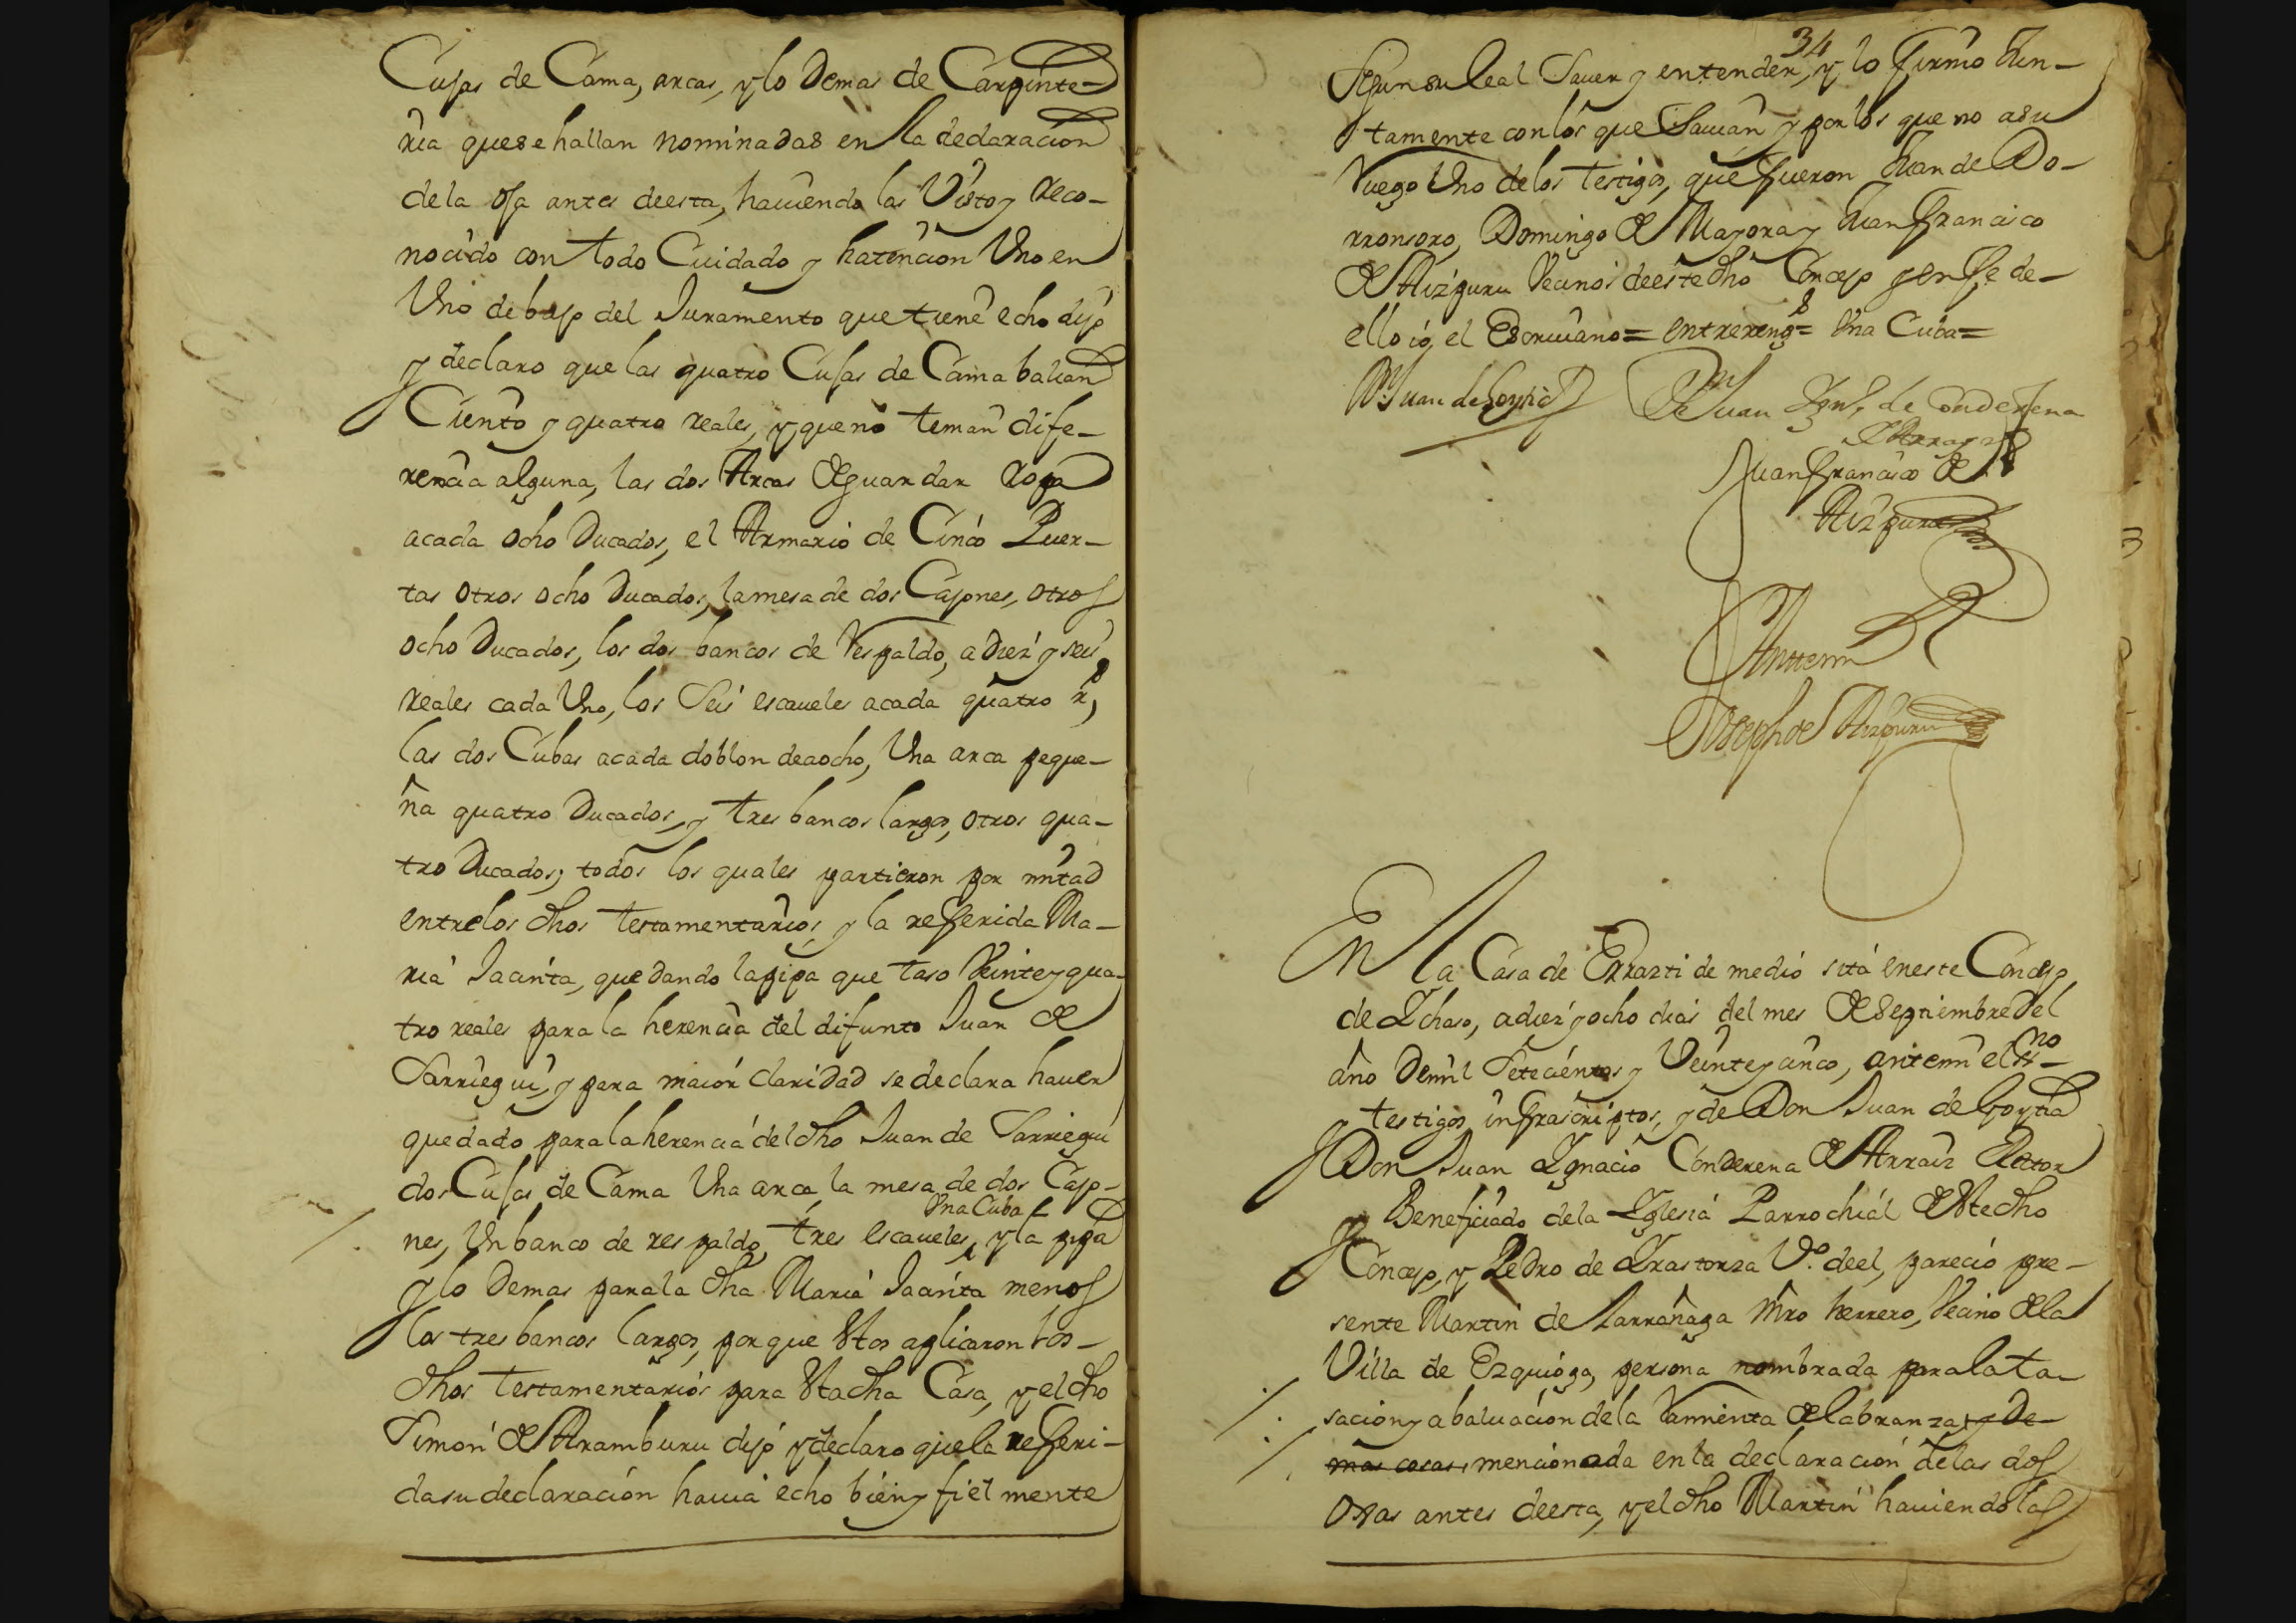 Cujas de Cama, arcas, y lo Demas de Carpinte-
ria que se hallan nominadas en la declaracion
de la oja antes de esta, haviendo las Visto y Reco-
nocido con todo Cuidado y hatencion Uno en
Uno debajo del Juramento que tiene echo dijo
y declaro que las quatro Cujas de Cama balian
Ciento y quatro reales, y que no tenian dife-
rencia alguna, las dos Arcas de guardar Ropa
a cada ocho Ducados, el Armario de Cinco Puer-
tas otros ocho Ducados, la mesa de dos Cajones, otros
ocho Ducados, los dos bancos de Respaldo, a Diez y seis
reales cada Uno, los Seis escaveles a cada quatro rs,
las dos Cubas a cada doblon de a ocho, Una arca peque-
ña quatro Ducados, y tres bancos largos, otros qua-
tro Ducados; todos los quales partieron por mitad
entre los dhos testamentarios, y la refferida Ma-
ria Jacinta, quedando la pipa que taso Veinte y qua-
tro reales para la herencia del difunto Juan de
Sarriegui, y para maior claridad se declara haver
quedado para la herencia del dho Juan de Sarriegui
dos Cujas de Cama Una arca, la mesa de dos Cajo-
Una Cuba
nes, Un banco de respaldo, tres escaveles, y la pipa
y lo Demas para la dha Maria Jacinta menos
los tres bancos largos, porque estos aplicaron los
dhos testamentarios para esta dha Casa, y el dho
Simon de Aramburu dijo y declaro que la refferi-
da su declaracion havia echo bien y fielmente
34
Segun su leal Saver y entender, y lo firmo Jun-
tamente con los que Savian y por los que no a su
Ruego Uno de los testigos, que fueron Juan de Do-
rronsoro, Domingo de Mayora y Juan Francisco
de Aizpuru Vecinos de este dho Concejo y en fe de
ello io, el Escrivano = entrerengs = Una Cuba =
Dn Juan de Goytia
Dn Juan Igno de Conderena
de Arraiz
Juan Francisco de
Aizpuru
Ante mi
Joseph de Aizpuru
En la Casa de Errazti de medio sita en este Concejo
de Ichaso, a diez y ocho dias del mes de Septiembre del
año De mil Setecientos y Veinte y cinco, ante mi el ssno
y testigos infrascriptos, y de Don Juan de Goytia
y Don Juan Ignacio Conderena de Arraiz Rector
y Beneficiado de la Iglesia Parrochial de este dho
Concejo, y Pedro de Irastorza Vo. de el, parecio pre-
sente Martin de Larrañaga Mro herrero, Vecino de la
Villa de Ezquioga, persona nombrada para la ta-
sacion y abaluacion de la Ramienta de labranza, y De-
mas cosas, mencionada en la declaracion de las dos
ojas antes de esta, y el dho Martin haviendo las